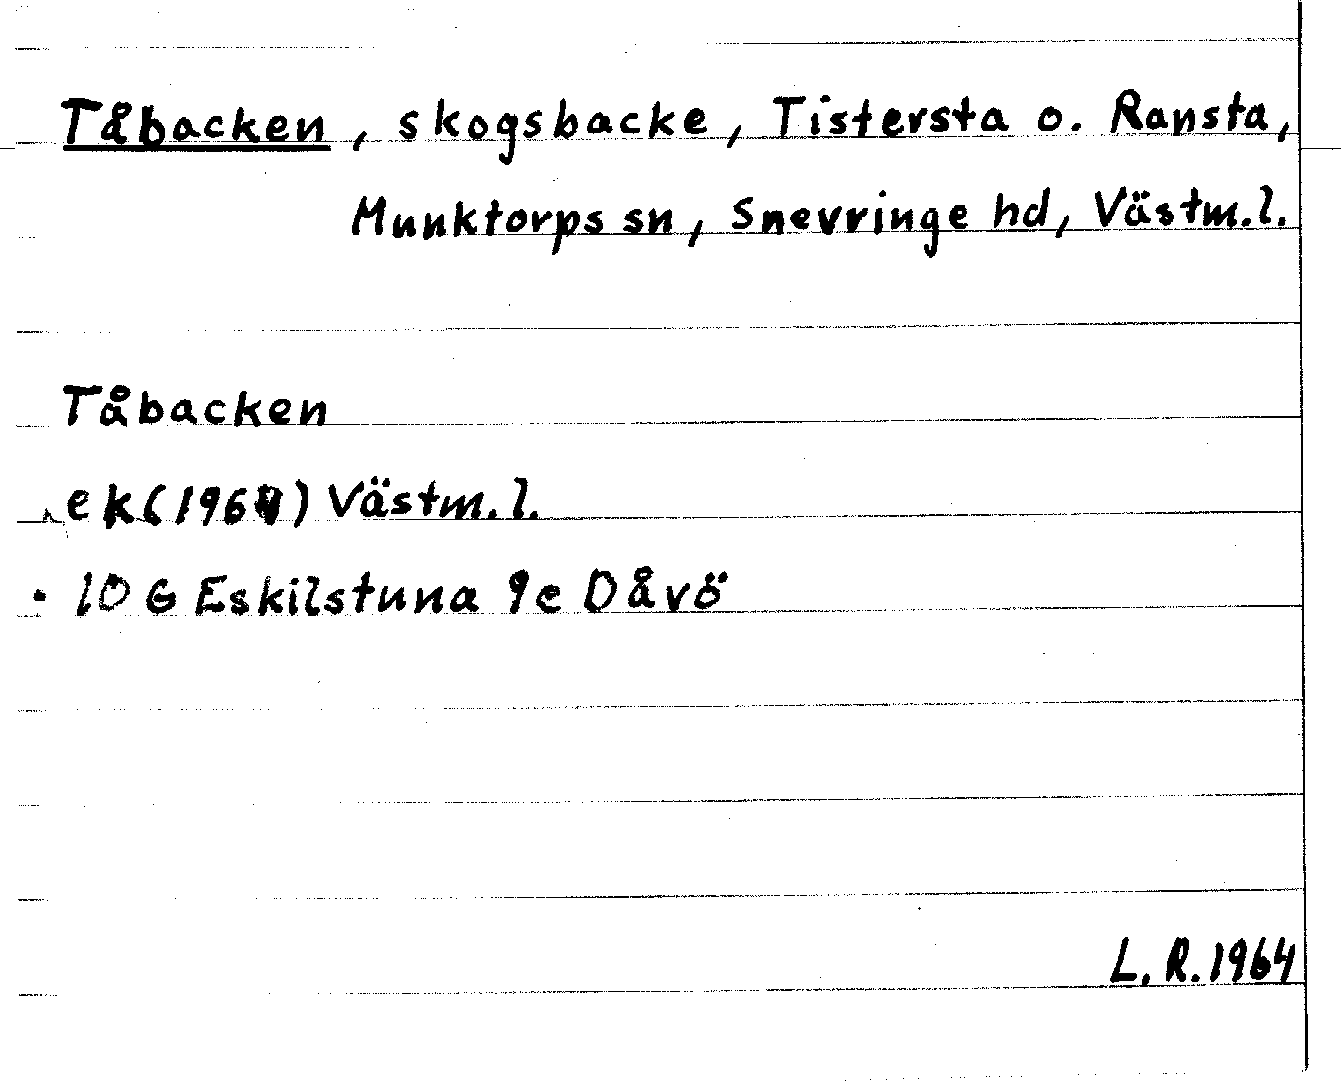 Tåbacken, skogsbacke, Tistersta o. Ransta,
Munktorps sn, Snevringe hd, Västm.l.
Tåbacken
ek(1964) Västm.l.
10 G Eskilstuna 9e Dåvö
L. R. 1964